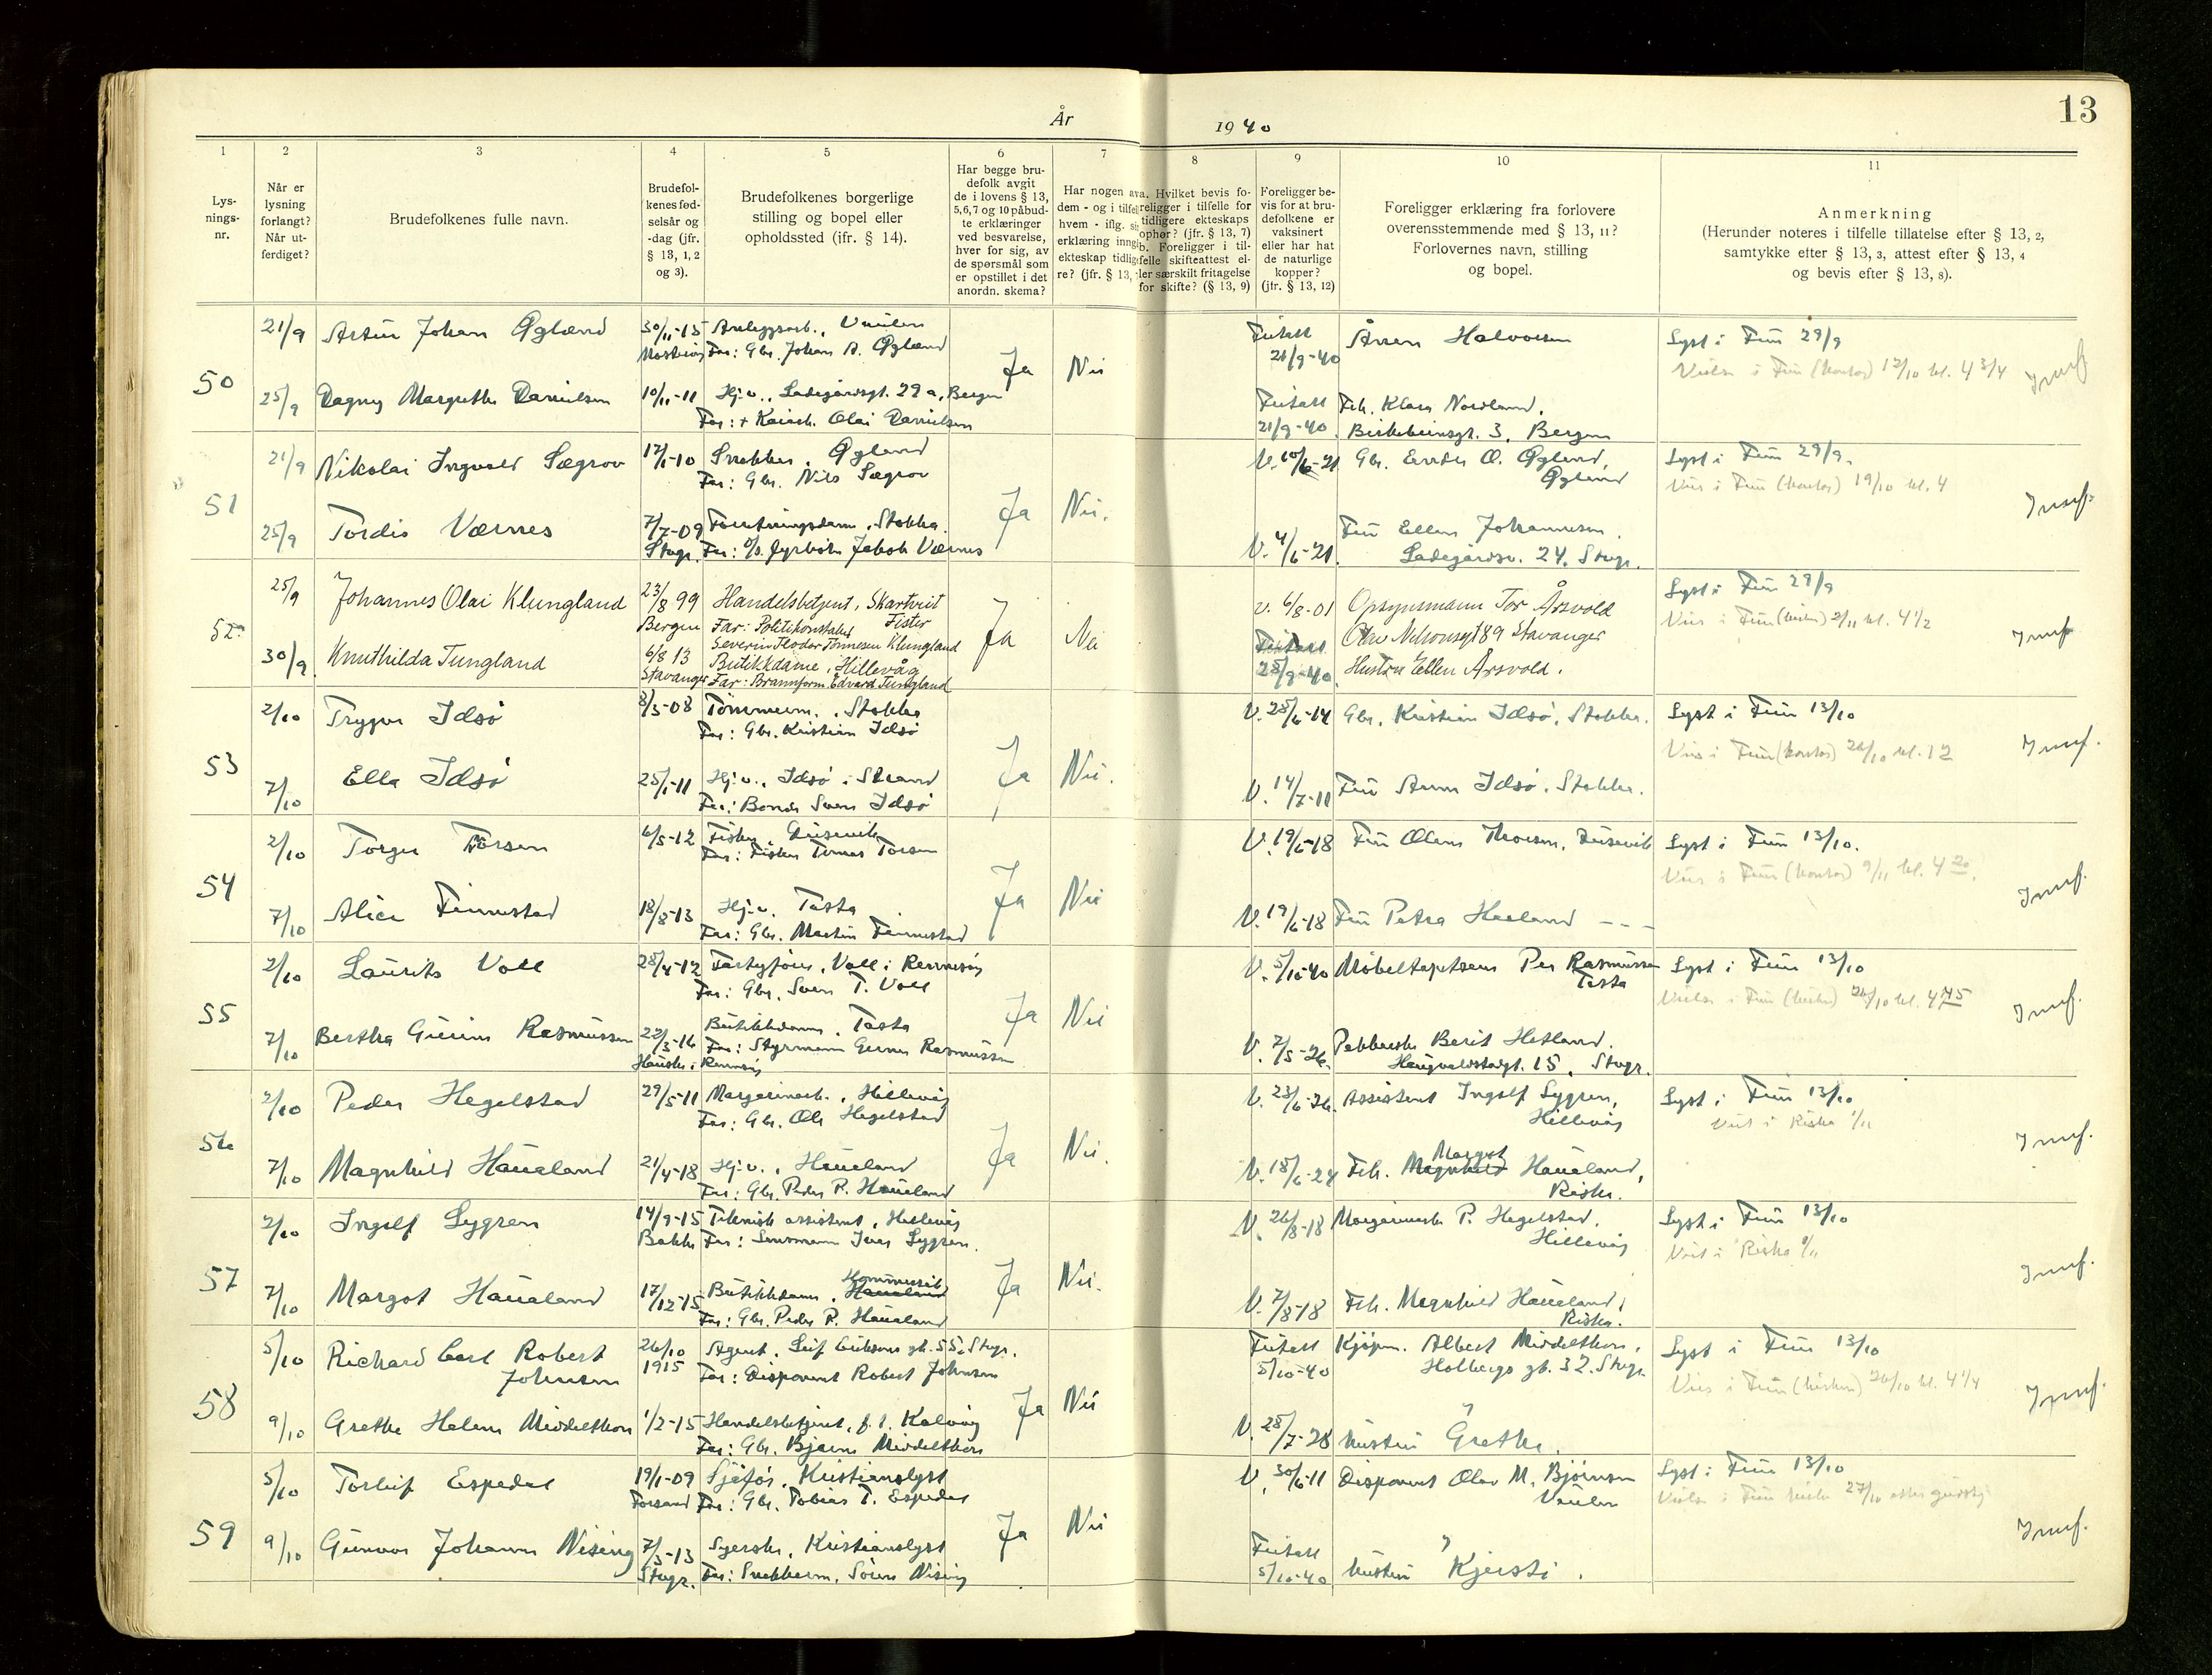 13
År 1940
1 2 3 4 5 6 7 8 9 10 11
Lys-
nings-
nr.
Når er
lysning
forlangt?
Når ut-
ferdiget?
Brudefolkenes fulle navn.
Brudefol-
kenes fød-
selsår og
-dag (jfr.
§ 13, 1, 2
og 3).
Brudefolkenes borgerlige
stilling og bopel eller
opholdssted (ifr. § 14).
Har begge bru-
defolk avgit
de i lovens § 13,
5,6,7 og 10 påbud-
te erklæringer
ved besvarelse,
hver for sig, av
de spørsmål som
er opstillet i det
anordn. skema?
Har nogen av
dem - og i tilfel
hvem - iflg. si
erklæring inngå
ekteskap tidlige
re? (jfr. § 13,
a. Hvilket bevis fo-
religger i tilfelle for
tidligere ekteskaps
ophør? (jfr. § 13, 7)
b. Foreligger i til-
felle skifteattest el-
ler særskilt fritagelse
for skifte? (§ 13, 9)
Foreligger be-
vis for at bru-
defolkene er
vaksinert
eller har hat
de naturlige
kopper?
(jfr. § 13, 12)
Foreligger erklæring fra forlovere
overensstemmende med § 13, 11?
Forlovernes navn, stilling
og bopel.
Anmerkning
(Herunder noteres i tilfelle tillatelse efter § 13, 2,
samtykke efter § 13, 3, attest efter § 13, 4
og bevis efter § 13, 8).
50
21/9 Johan Øglænd 30/11-15
Far: Gbr. Johan A. Øglænd
21/9-40
Halvorsen
Lyst i Frue 29/9
Vielse i Frue (kontor) 12/10 kl. 4 3/4
25/9 Dagny Margrethe Danielsen 10/11-11 Hj.v., Ladegårdsgt. 29 a, Bergen
Far: + Olai Danielsen
Ja Nei
21/9-40
Frk. Klara Nordland,
Birkebeinsgt. 3, Bergen
51
21/9 Nikolai Ingvald Sægrov 12/1-10 Snekker, Øgland
Far: Gbr. Nils Sægrov
Gbr. O. Øgland,
Øgland
Lyst i Frue 29/9.
Viet i Frue (kontor) 19/10 kl. 4
25/9 Tordis Værnes 7/7-09 Stokka
Stvgr. Far: Fyrbøter Jakob Værnes
Ja Nei.
V. 4/6-21.
Fru Ellen Johannesen
Ladegårdsv. 24. Stvgr.
52
25/9 Johannes Olai Klungland 23/8 99 Handelsbetjent, Skartveit
Bergen Far: Politikonstabel Fister
Severin Tønnesen Klungland
v. 6/8-01 Opsynsmann Tor Årsvold
Olav Nilsonsgt 89 Stavanger
Lyst i Frue 29/9
Viet i Frue (kirken) 2/11 kl. 4 1/2
30/9 Knuthilda Tungland 6/8 13 Butikkdame, Hillevåg
Stavanger Far: Brannform. Edvard Tungland
Ja Nei
25/9-40
Hustru Ellen Årsvold.
53
2/10 Trygve Idsø 8/3-08 Tømmerm., Stokka
Far: Gbr. Kristian Idsø
V. 25/6-14 Gbr. Kristian Idsø, Stokka.
Lyst i Frue 13/10
Viet i Frue (kontor) 26/10 kl. 12
7/10 Ella Idsø 25/1-11 Hj.v., Idsø i Strand
Far: Bonde Sven Idsø
Ja Nei.
V. 14/7-11 Fru Anna Idsø, Stokka.
54
2/10 Torger Torsen 6/5-12 Fisker, Dusevik
Far: Fisker Torsen
V. 19/6-18 Fru Olena Thorsen, Dusevik
Lyst i Frue 13/10.
Viet i Frue (kontor) 9/11 kl. 4 20.
7/10 Alice Finnestad 18/8-13 Hj.v. Tasta
Far: Gbr. Martin Finnestad
Ja Nei
V. 19/6-18 Fru Petra Haaland - - -
55
2/10 Laurits Voll 28/4-12 Voll i Rennesøy
Far: Gbr. Sven T. Voll
V. 5/10-40 Møbeltapetserer Per Rasmussen
Tasta
Lyst i Frue 13/10
Vielse i Frue (kirken) 26/10 kl. 4 45
7/10 Bertha Gurine Rasmussen 22/3-16 Butikkdame, Tasta
Far: Styrmann Rasmussen
Hauske i Rennesøy
Ja Nei
V. 7/5-26. Berit Hetland.
Haugvaldstadgt. 15, Stvgr.
56
2/10 Peder Hegelstad 29/5-11 Margarinarb., Hillevåg
Far: Gbr. Ole Hegelstad
V. 23/6-26. Assistent Ingolf Lygren,
Hillevåg
Lyst i Frue 13/10
Viet i Riska 1/11
7/10 Magnhild Haualand 21/4-18 Hj.v., Haualand
Far: Gbr. Peder P. Haualand
Ja Nei.
V. 18/6-24 Frk. Magnhild Margot Haualand,
Riska.
57
2/10 Ingolf Lygren 14/9-15 Teknisk assistent, Hillevåg
Bakke Far: Lensmann Iver Lygren.
V. 26/8-18 Margarinarb. P. Hegelstad,
Hillevåg
Lyst i Frue 13/10
Viet i Riska 1/11
7/10 Margot Haualand 17/12-15 Butikkdame, Haualand Hommersåk
Far: Gbr. Peder P. Haualand
Ja Nei.
V. 7/8-18 Frk. Magnhild Haualand,
Riska.
58
5/10 Richard Carl Robert
Johnsen
26/10 1915 Agent, Leif Eriksons gt. 55, Stvgr.
Far: Disponent Robert Johnsen
5/10-40
Kjøpm. Albert Middelthon,
Holbergs gt. 32. Stvgr.
Lyst i Frue 13/10
Viet i Frue (kirken) 26/10 kl. 4 1/4
9/10 Grethe Helene Middelthon 1/2-15 Handelsbetjent, f.t. Kalvøy
Far: Gbr. Bjarne Middelthon
Ja Nei
V. 28/7-28 hustru " Grethe.
59
5/10 Torleif Espedal 19/1-09 Sjåfør, Kristianslyst
Forsand Far: Gbr. Tobias T. Espedal
V. 30/6-11 Disponent Olav M. Bjørnsen
Vaulen
Lyst i Frue 13/10
Vielse i Frue kirke 27/10 etter gudstj
9/10 Gunvor Johanne Nising 7/3-13 Syerske, Kristianslyst
Stvgr. Far: Snekkerm. Sören Nising
Ja Nei
5/10-40
hustru " Kjersti.